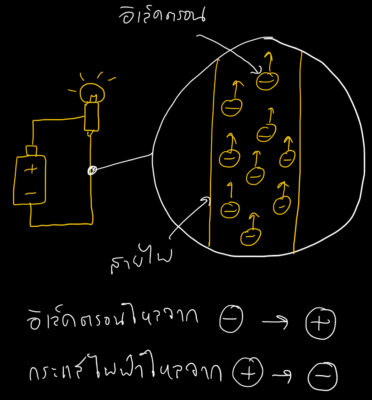 อิเล็คตรอน
+
−
สายไฟ
อิเล็คตรอนไหลจาก − → +
กระแสไฟฟ้าไหลจาก + → −